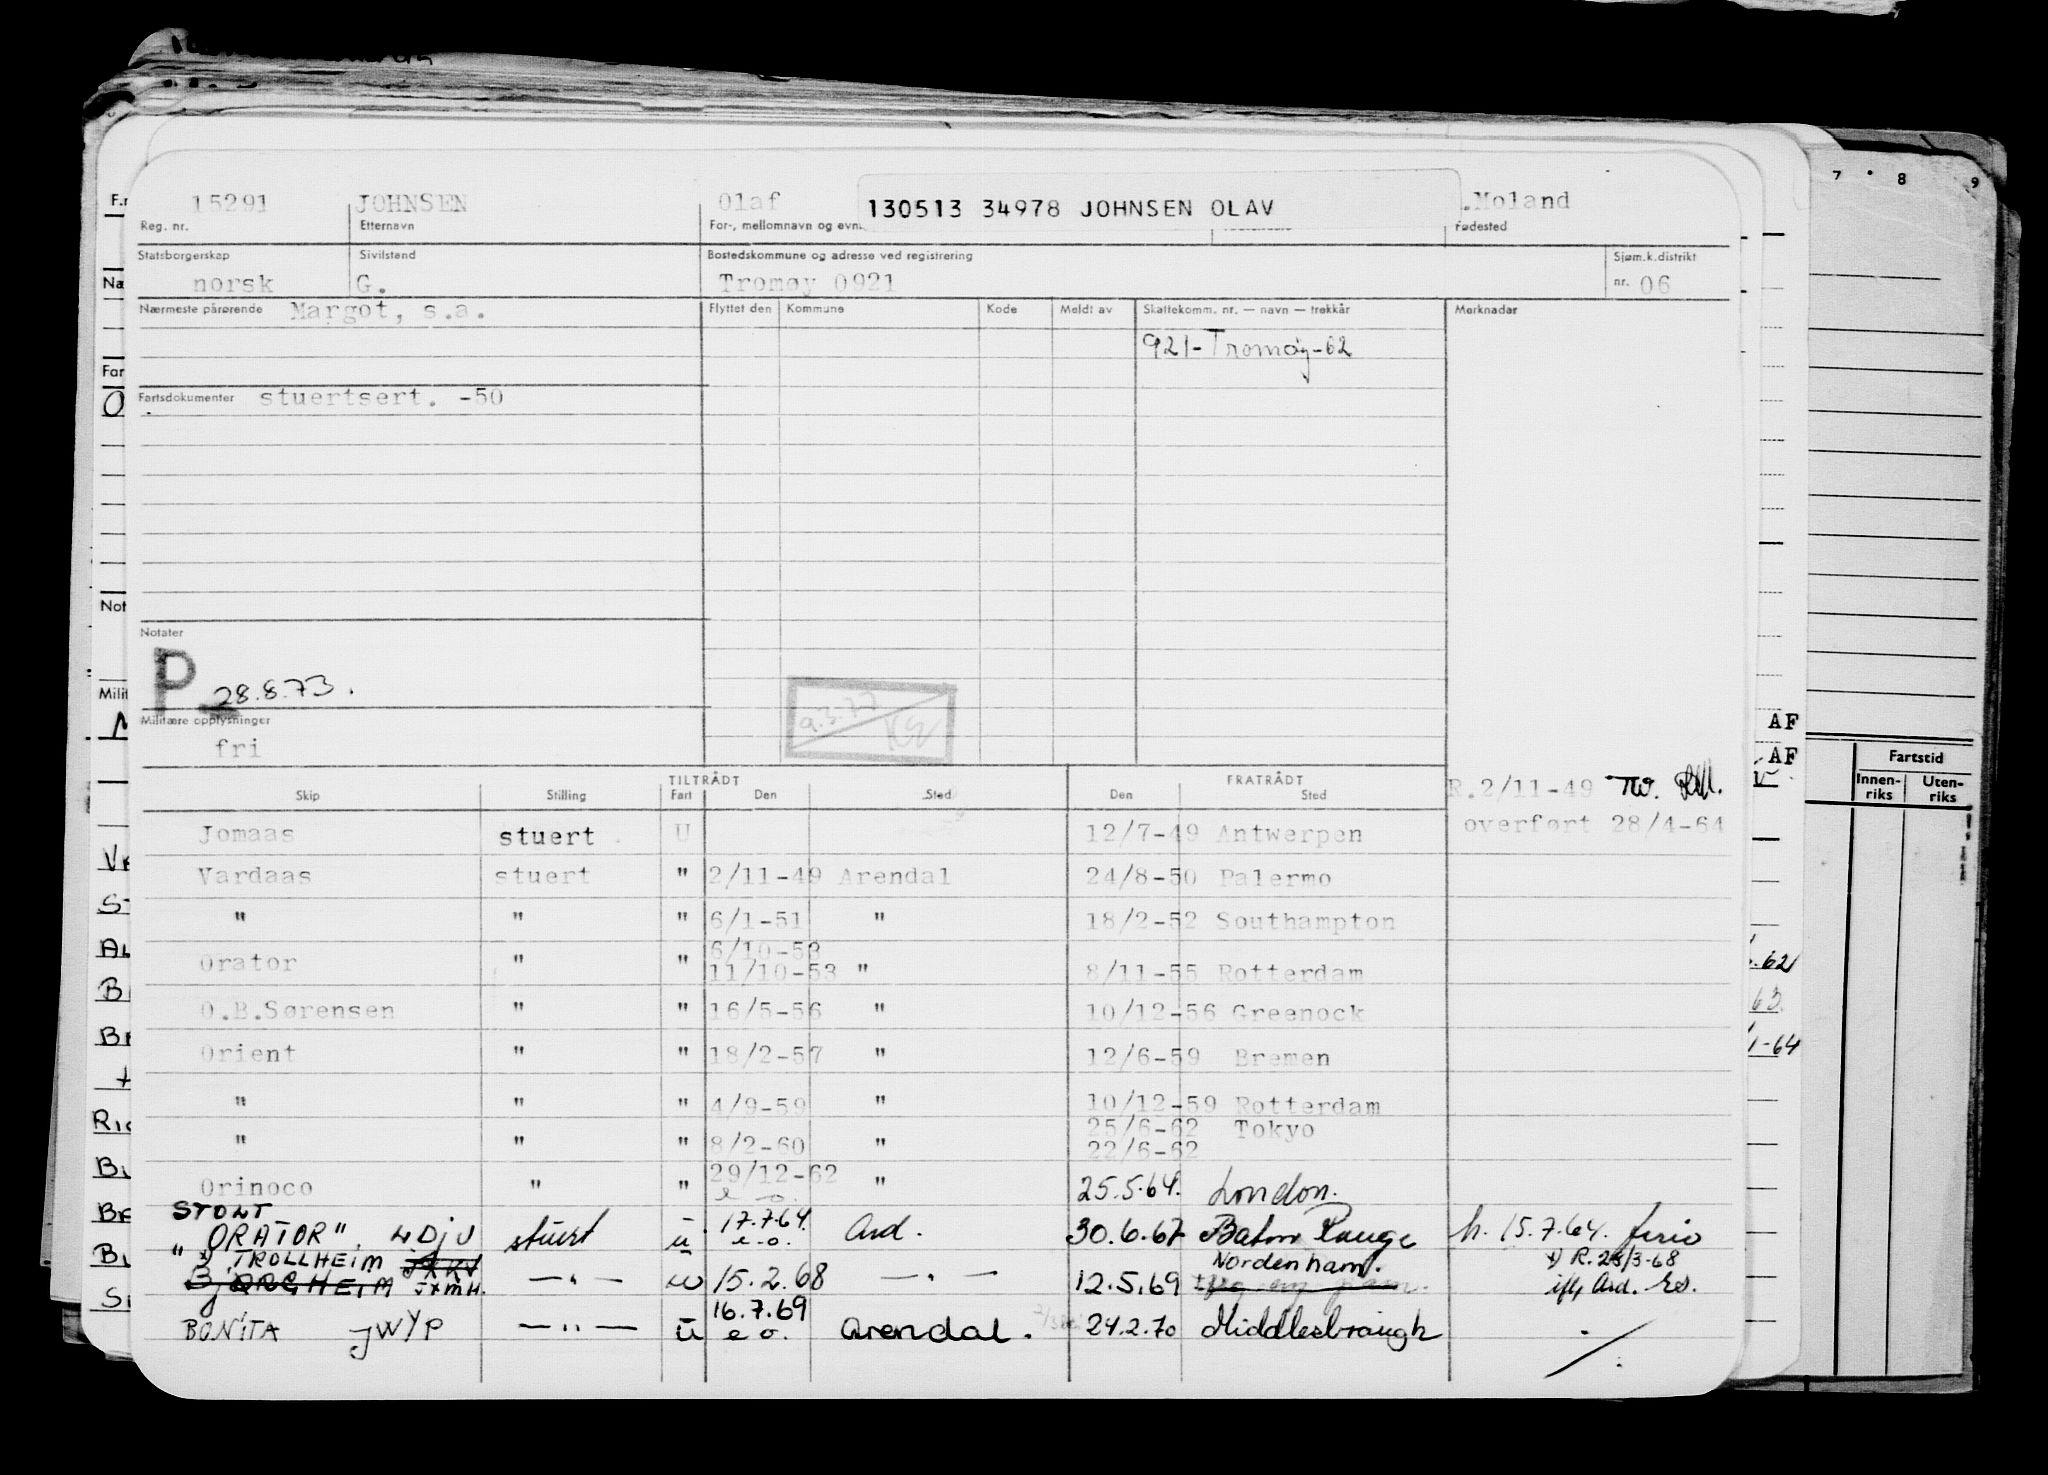 15291 JOHNSEN Olaf 130513 34978 JOHNSEN OLAV .Moland
Reg. nr. Etternavn For-, mellomnavn og evnt. Fødested
Statsborgerskap Sivilstand Bostedskommune og adresse ved registrering Sjøm.k.distrikt
norsk G. Tromøy 0921 nr. 06
Nærmeste pårørende Margot, s.a. Flyttet den Kommune Kode Meldt av Skattekomm. nr. — navn — trekkår Merknader
921-Tromøy-62
Fartsdokumenter stuertsert. -50
Notater
P 28.8.73.
9.3.77
Militære opplysninger
fri
TILTRÅDT FRATRÅDT
Skip Stilling Fart Den Sted Den Sted R.2/11-49
Jomaas stuert U 12/7-49 Antwerpen overført 28/4-64
Vardaas stuert " 2/11-49 Arendal 24/8-50 Palermo
" " " 6/1-51 " 18/2-52 Southampton
6/10-53
Orator " " 11/10-53 " 8/11-55 Rotterdam
O.B.Sørensen " " 16/5-56 " 10/12-56 Greenock
Orient " " 18/2-57 " 12/6-59 Bremen
" " " 4/9-59 " 10/12-59 Rotterdam
25/6-62 Tokyo
" " " 8/2-60 " 22/6-62
29/12-62
Orinoco " " e o. " 25.5.64. London.
STOLT 17.7.64.
"ORATOR". LDJU stuert u e.o. Ard. 30.6.67 h. 15.7.64. ferie
x) TROLLHEIM Nordenham. x) R. 25/3-68
BJORGHEIM JXMH. —"— u 15.2.68 —"— 12.5.69 iflg Ard.
16.7.69
BONITA JWYP —"— u e o. Arendal. 24.2.70 Middlesbraugh
7 8 9
AF
AF
Fartstid
Innen-riks Uten-riks
.62
63.
1-64